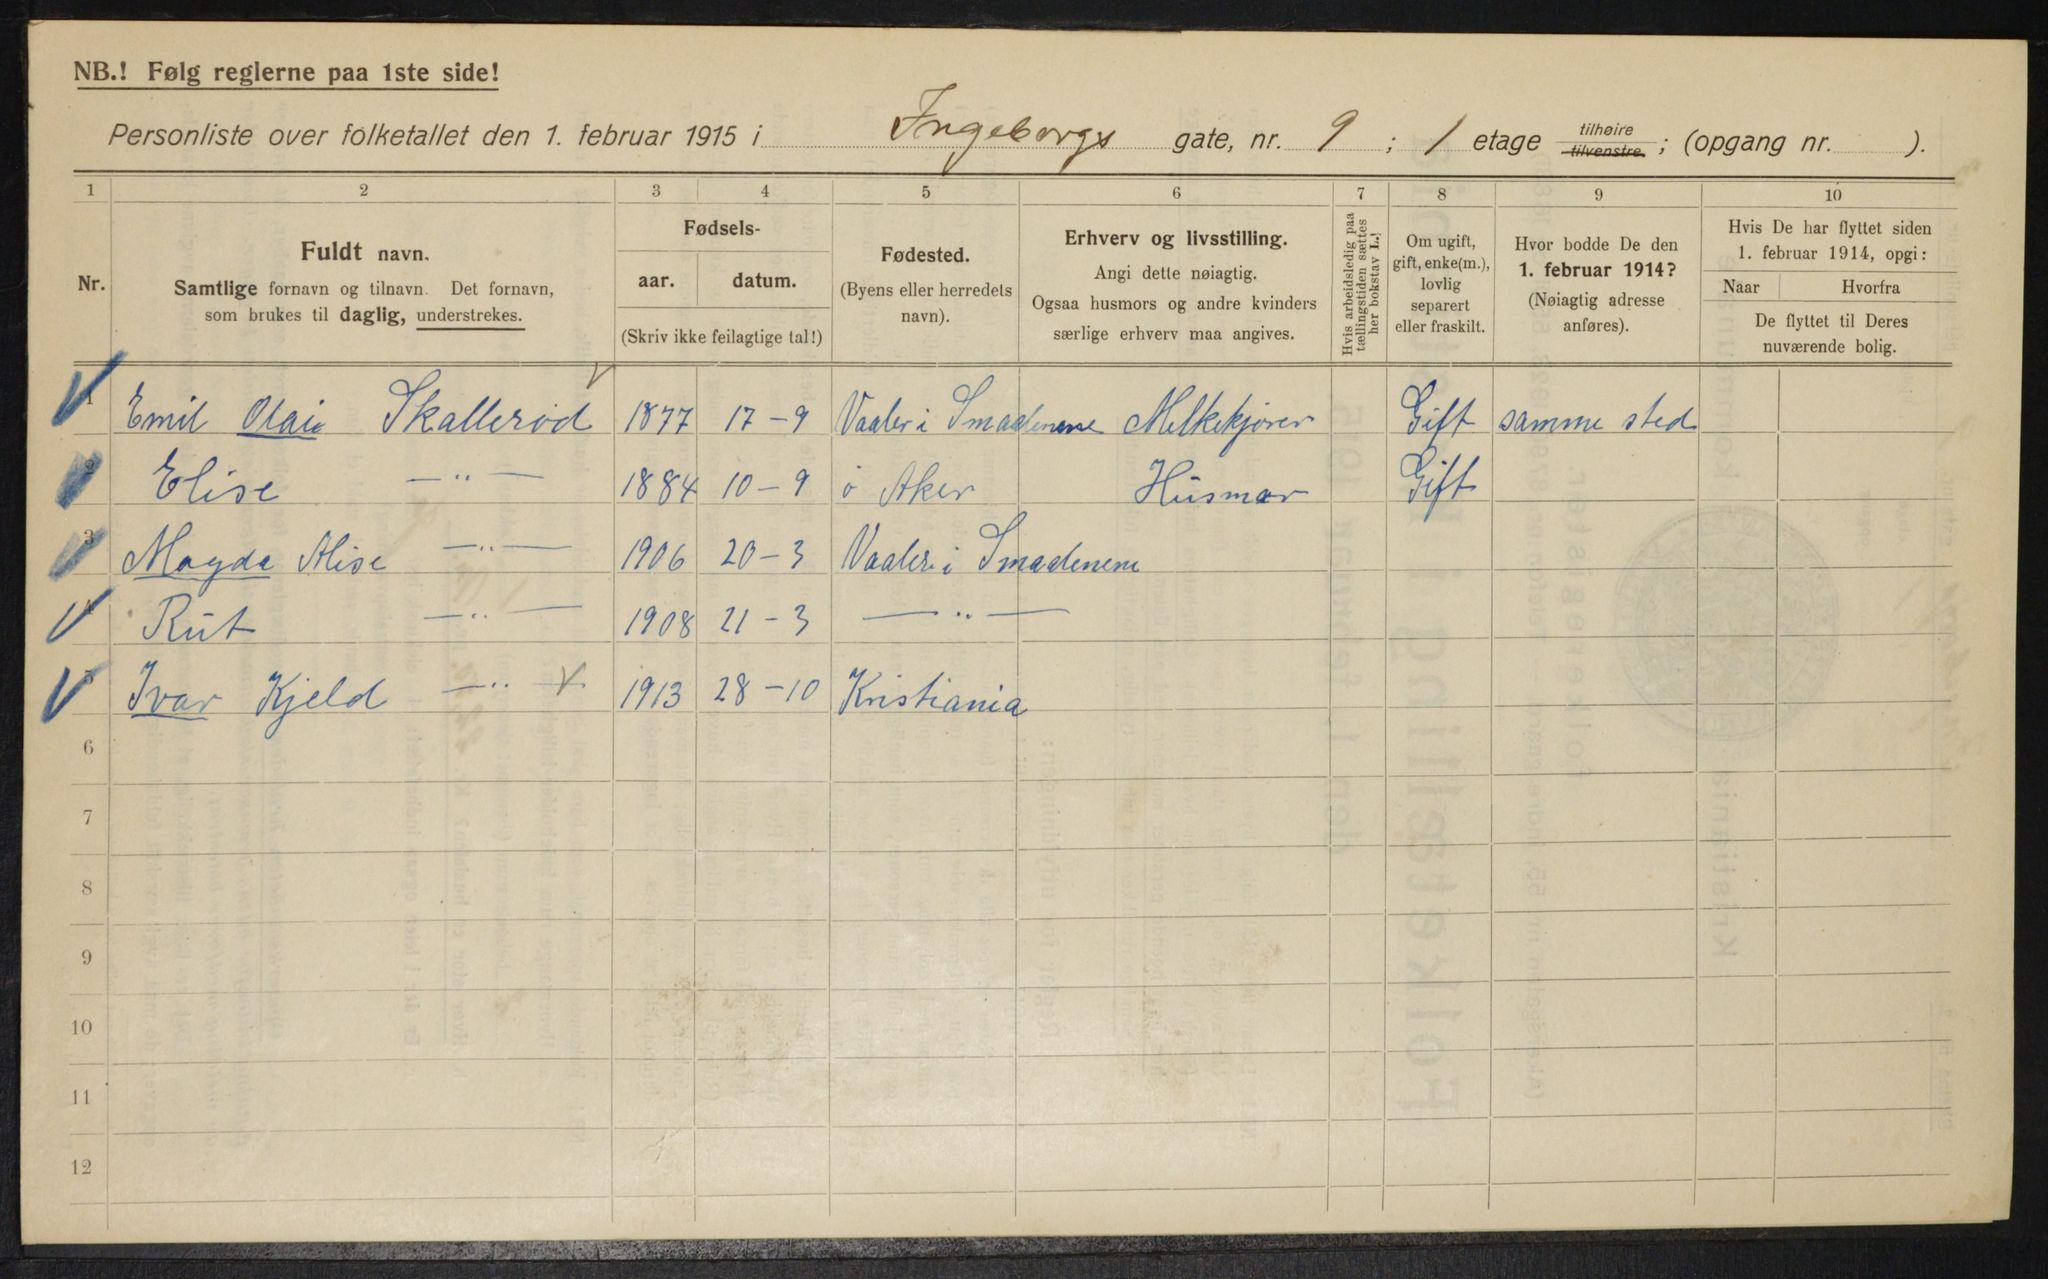 NB.! Følg reglerne paa 1ste side!
Personliste over folketallet den 1. februar 1915 i Ingeborgs gate, nr. 9 ; 1 etage tilhøire tilvenstre ; (opgang nr. ).
1 2 3 4 5 6 7 8 9 10
Nr.
Fuldt navn.
Samtlige fornavn og tilnavn. Det fornavn,
som brukes til daglig, understrekes.
Fødsels-
aar. datum.
(Skriv ikke feilagtige tal!)
Fødested.
(Byens eller herredets
navn).
Erhverv og livsstilling.
Angi dette nøiagtig.
Ogsaa husmors og andre kvinders
særlige erhverv maa angives.
Hvis arbeidsledig paa
tællingstiden sættes
her bokstav L.!
Om ugift,
gift, enke(m.),
lovlig
separert
eller fraskilt.
Hvor bodde De den
1. februar 1914?
(Nøiagtig adresse
anføres).
Hvis De har flyttet siden
1. februar 1914, opgi:
Naar Hvorfra
De flyttet til Deres
nuværende bolig.
1 Emil Olai Skallerød 1877 17-9 Vaaler i Smaalenene Melkekjører Gift samme sted
2 Elise —„— 1884 10-9 ö Aker Husmor Gift
3 Magda Alise —„— 1906 20-3 Vaaler i Smaalenene
4 Rut —„— 1908 21-3 —„—
5 Ivar Kjeld —„— 1913 28-10 Kristiania
6
7
8
9
10
11
12